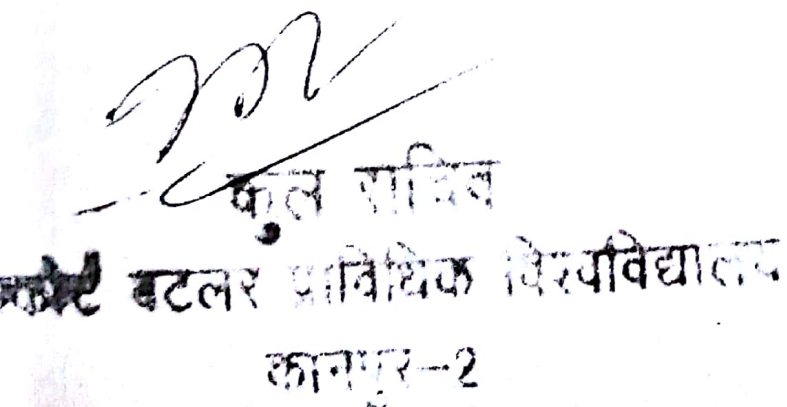 कुल सचिव
बटलर प्राविधिक विश्वविद्यालय
कानपुर-2